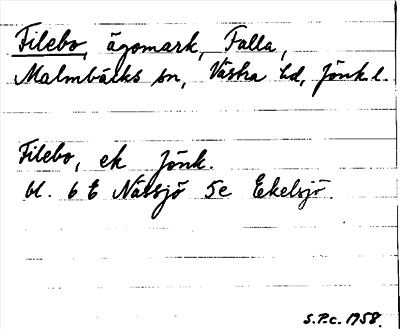 Filebo, ägomark, Falla,
Malmbäcks sn, Västra hd, Jönk. l.
Filebo, ek Jönk.
bl. 6 E Nässjö 5e Ekelsjö.
S.P.c. 1958.